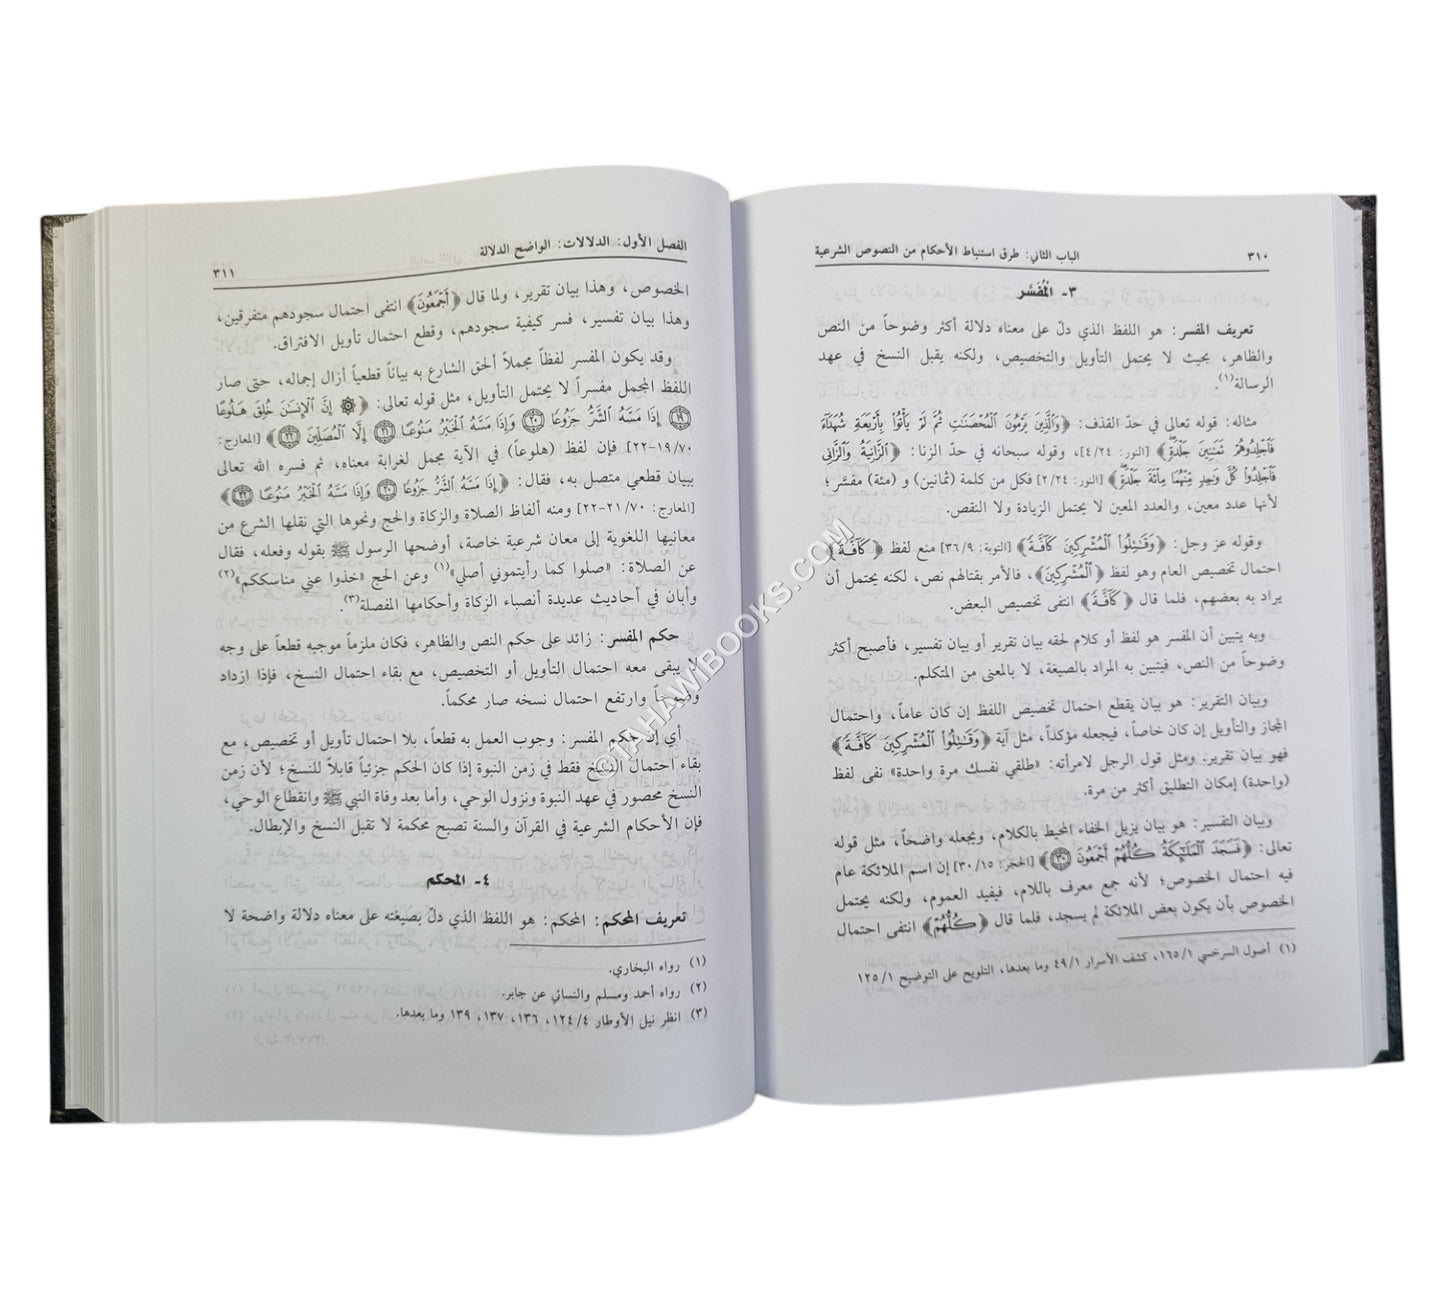 ٣١٠ الباب الثاني: طرق استنباط الأحكام من النصوص الشرعية
٣- الْمُفَسَّر
تعريف المفسر: هو اللفظ الذي دلّ على معناه دلالة أكثر وضوحاً من النص
والظاهر، بحيث لا يحتمل التأويل والتخصيص، ولكنه يقبل النسخ في عهد
الرسالة(١).
مثاله: قوله تعالى في حدّ القذف: ﴿وَالَّذِينَ يَرْمُونَ الْمُحْصَنَاتِ ثُمَّ لَمْ يَأْتُوا بِأَرْبَعَةِ شُهَدَاءَ
فَاجْلِدُوهُمْ ثَمَانِينَ جَلْدَةً﴾ [النور: ٤/٢٤]، وقوله سبحانه في حدّ الزنا: ﴿الزَّانِيَةُ وَالزَّانِي
فَاجْلِدُوا كُلَّ وَاحِدٍ مِنْهُمَا مِائَةَ جَلْدَةٍ﴾ [النور: ٢/٢٤] فكل من كلمة (ثمانين) و (مئة) مفسَّر؛
لأنها عدد معين، والعدد المعين لا يحتمل الزيادة ولا النقص.
وقوله عز وجل: ﴿وَقَاتِلُوا الْمُشْرِكِينَ كَافَّةً﴾ [التوبة: ٣٦/٩] منع لفظ ﴿كَافَّةً﴾
احتمال تخصيص العام وهو لفظ ﴿الْمُشْرِكِينَ﴾، فالأمر بقتالهم نص، لكنه يحتمل أن
يراد به بعضهم، فلما قال ﴿كَافَّةً﴾ انتفى تخصيص البعض.
وبه يتبين أن المفسر هو لفظ أو كلام لحقه بيان تقرير أو بيان تفسير، فأصبح أكثر
وضوحاً من النص، فيتبين به المراد بالصيغة، لا بالمعنى من المتكلم.
وبيان التقرير: هو بيان يقطع احتمال تخصيص اللفظ إن كان عاماً، واحتمال
المجاز والتأويل إن كان خاصاً، فيجعله مؤكداً، مثل آية ﴿وَقَاتِلُوا الْمُشْرِكِينَ كَافَّةً﴾
فهو بيان تقرير. ومثل قول الرجل لامرأته: «طلقي نفسك مرة واحدة» نفى لفظ
(واحدة) إمكان التطليق أكثر من مرة.
وبيان التفسير: هو بيان يزيل الخفاء المحيط بالكلام، ويجعله واضحاً، مثل قوله
تعالى: ﴿فَسَجَدَ الْمَلَائِكَةُ كُلُّهُمْ أَجْمَعُونَ ٣٠﴾ [الحجر: ٣٠/١٥] إن اسم الملائكة عام
فيه احتمال الخصوص؛ لأنه جمع معرف باللام، فيفيد العموم، ولكنه يحتمل
الخصوص بأن يكون بعض الملائكة لم يسجد، فلما قال ﴿كُلُّهُمْ﴾ انتفى احتمال
(١) أصول السرخسي ١٦٥/١، كشف الأسرار ٤٩/١ وما بعدها، التلويح على التوضيح ١٢٥/١
الفصل الأول: الدلالات: الواضح الدلالة ٣١١
الخصوص، وهذا بيان تقرير، ولما قال ﴿أَجْمَعُونَ﴾ انتفى احتمال سجودهم متفرقين،
وهذا بيان تفسير، فسر كيفية سجودهم، وقطع احتمال تأويل الافتراق.
وقد يكون المفسر لفظاً مجملاً ألحق الشارع به بياناً قطعياً أزال إجماله، حتى صار
اللفظ المجمل مفسراً لا يحتمل التأويل، مثل قوله تعالى: ﴿۞ إِنَّ الْإِنسَانَ خُلِقَ هَلُوعًا
١٩ إِذَا مَسَّهُ الشَّرُّ جَزُوعًا ٢٠ وَإِذَا مَسَّهُ الْخَيْرُ مَنُوعًا ٢١ إِلَّا الْمُصَلِّينَ ٢٢﴾ [المعارج:
٧٠/١٩-٢٢] فإن لفظ (هلوعاً) في الآية مجمل لغرابة معناه، ثم فسره الله تعالى
ببيان قطعي متصل به، فقال: ﴿إِذَا مَسَّهُ الشَّرُّ جَزُوعًا ٢٠ وَإِذَا مَسَّهُ الْخَيْرُ مَنُوعًا ٢٢﴾
[المعارج: ٧٠/٢١-٢٢] ومنه ألفاظ الصلاة والزكاة والحج ونحوها التي نقلها الشرع من
معانيها اللغوية إلى معان شرعية خاصة، أوضحها الرسول ﷺ بقوله وفعله، فقال
عن الصلاة: «صلوا كما رأيتموني أصلي»(١) وعن الحج «خذوا عني مناسككم»(٢)
وأبان في أحاديث عديدة أنصباء الزكاة وأحكامها المفصلة(٣).
حكم المفسر: زائد على حكم النص والظاهر، فكان ملزماً موجبه قطعاً على وجه
لا يبقى معه احتمال التأويل أو التخصيص، مع بقاء احتمال النسخ، فإذا ازداد
وضوحاً وارتفع احتمال نسخه صار محكماً.
أي إن حكم المفسر: وجوب العمل به قطعاً، بلا احتمال تأويل أو تخصيص، مع
بقاء احتمال النسخ فقط في زمن النبوة إذا كان الحكم جزئياً قابلاً للنسخ؛ لأن زمن
النسخ محصور في عهد النبوة ونزول الوحي، وأما بعد وفاة النبي ﷺ وانقطاع الوحي،
فإن الأحكام الشرعية في القرآن والسنة تصبح محكمة لا تقبل النسخ والإبطال.
٤- المحكم
تعريف المحكم: المحكم: هو اللفظ الذي دلّ بصيغته على معناه دلالة واضحة لا
(١) رواه البخاري.
(٢) رواه أحمد ومسلم والنسائي عن جابر.
(٣) انظر نيل الأوطار ١٢٤/٤، ١٣٦، ١٣٧، ١٣٩ وما بعدها.
©TAHAWIBOOKS.COM